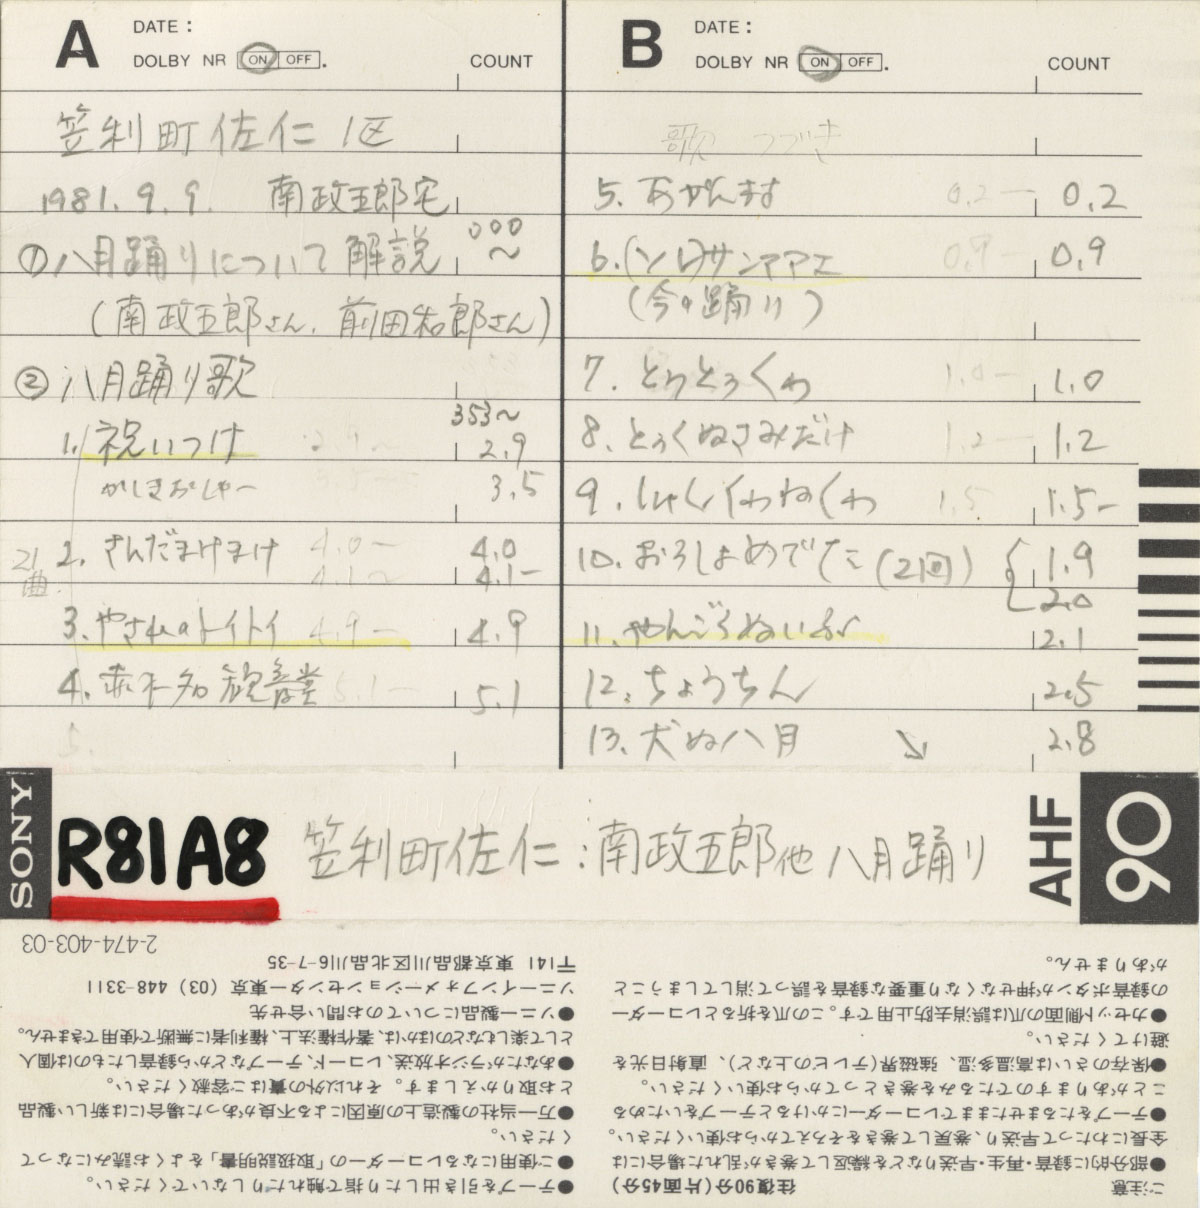 A
DATE :
DOLBY NR ON OFF .
COUNT
笠利町佐仁1区
1981. 9. 9. 南政五郎宅
① 八月踊りについて解説 000〜
(南政五郎さん、前田和郎さん)
② 八月踊り歌
353〜
1. 祝いつけ 2.9
かしまおしゃー 3.5
21曲
2. さんだまけまけ 4.0〜 4.0
4.1〜 4.1-
3. やさぬトイトイ 4.9- 4.9
4. 赤木名観音堂 5.1- 5.1
5.
B
DATE :
DOLBY NR ON OFF .
COUNT
歌 つづき
5. あがんまま 0.2- 0.2
6. (ソレ)サンマアエ 0.9- 0.9
(今の踊り)
7. とぅとぅくゎ 1.0- 1.0
8. とぅくぬさみだけ 1.2- 1.2
9. しゅんくゎねくゎ 1.5 1.5-
10. おろしょめでた (2回) 1.9
2.0
11. やんごらぬいぶ 2.1
12. ちょうちん 2.5
13. 犬ぬ八月 ↘ 2.8
SONY
R81A8
笠利町佐仁:南政五郎他 八月踊り
AHF
90
ご注意 往復90分(片面45分)
●部分的に録音・再生・早送りなどを繰返して巻きが乱れた場合には
全長にわたって早送り、巻戻して巻きをそろえてからお使いください。
●テープをたるませたままでレコーダーにかけるとテープをいためる
ことがありますのでたるみを巻きとってからお使いください。
●保存のさいは高温多湿、強磁界(テレビの上など)、直射日光を
避けてください。
●カセット側面の爪は誤消去防止用です。この爪を折るとレコーダー
の録音ボタンが押せなくなり重要な録音を誤って消してしまうこと
がありません。
●テープを引き出したり指で触れたりしないでください。
●ご使用になるレコーダーの「取扱説明書」をよくお読みになって
ください。
●万一当社の製造上の原因による不良があった場合には新しい製品
とお取りかえします。それ以外の責はご容赦ください。
●あなたがラジオ放送、レコード、テープなどから録音したものは個人
として楽しむなどのほかは、著作権法上、権利者に無断で使用できません。
●ソニー製品についてのお問い合せ先
ソニーインフォメーションセンター東京 (03) 448-3311
〒141 東京都品川区北品川6-7-35
2-474-403-03